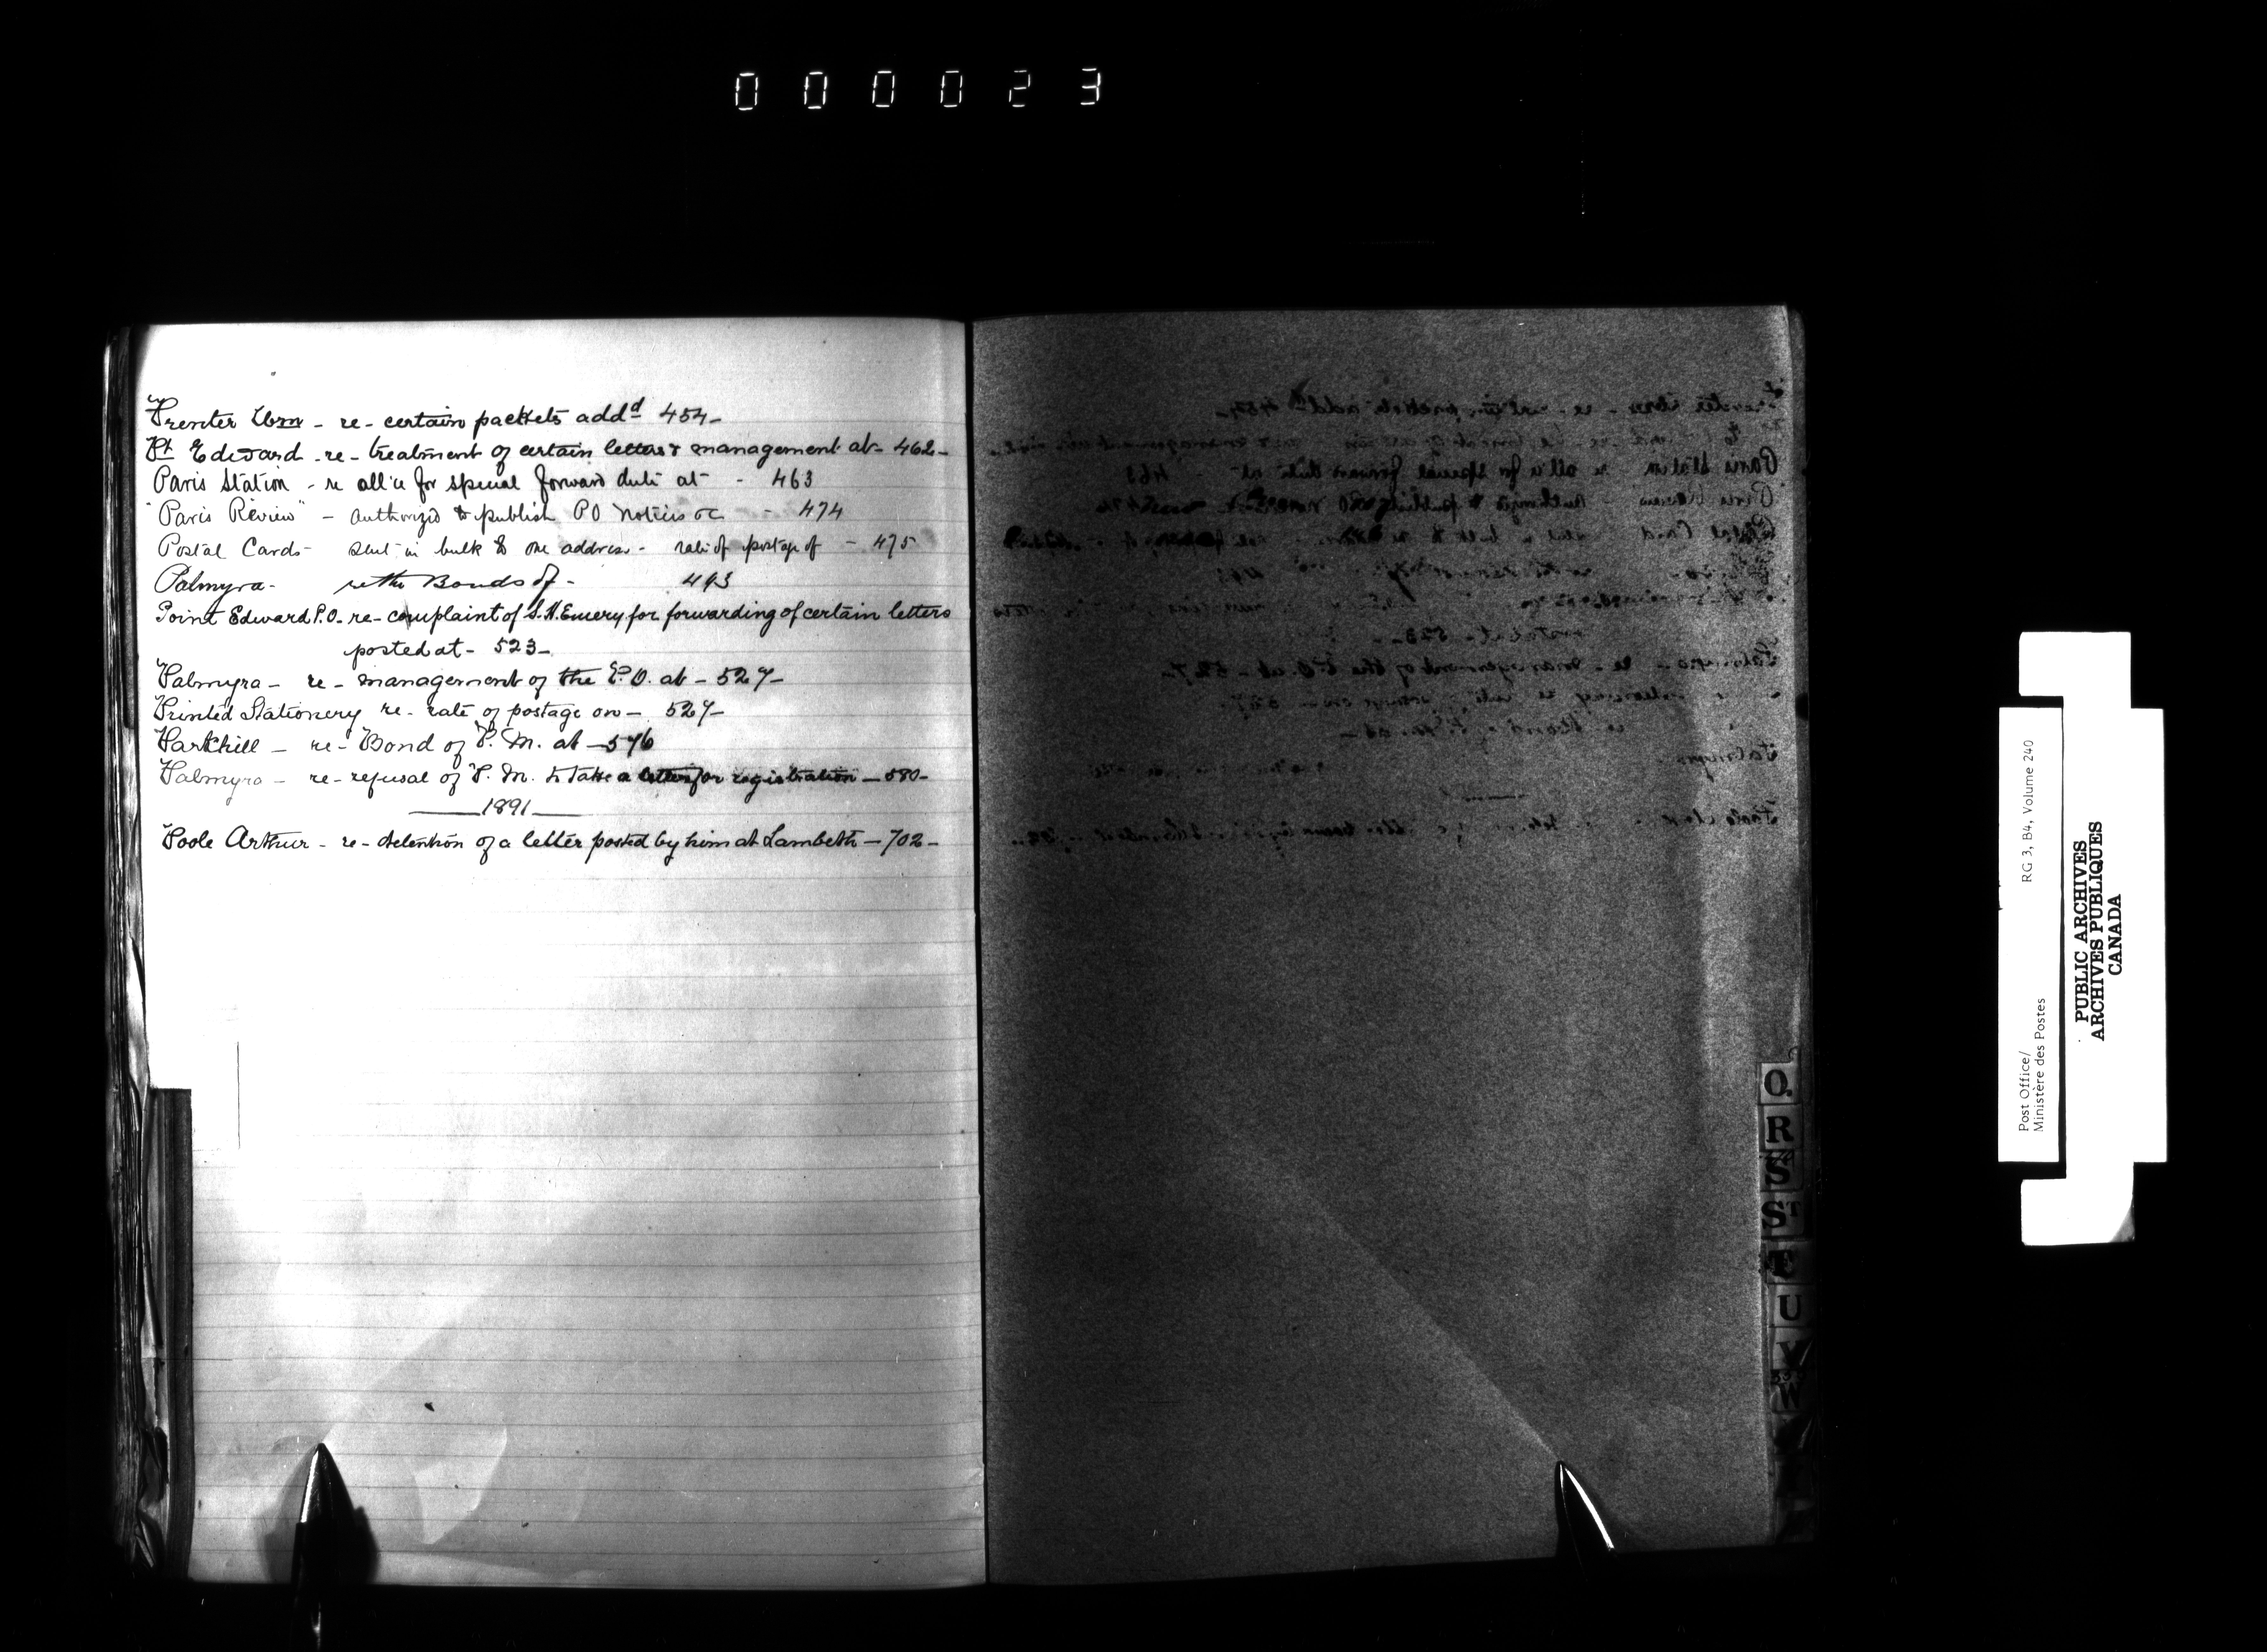 000023
Prenter Wm - re - certain packets addd 454-
Pt Edward - re - treatment of certain letters & management at - 462-
Paris Station - re all'ce for special forward duty at - 463
"Paris Review" - authorized to publish PO Notices &c - 474
Postal Cards - sent in bulk to one address - rate of postage of - 475
Palmyra - re the Bonds of - 493
Point Edward P.O. - re - complaint of S.H. Emery for forwarding of certain letters
posted at - 523-
Palmyra - re - management of the P.O. at - 527-
Printed Stationery re - rate of postage on - 527-
Parkhill - re - Bond of P.M. at - 576
Palmyra - re - refusal of P.M. to take a letter for registration - 580-
1891
Poole Arthur - re - detention of a letter posted by him at Lambeth - 702-
Q.
R
S
ST
T
U
V
W
Post Office/
Ministère des Postes
RG 3, B4, Volume 240
PUBLIC ARCHIVES
ARCHIVES PUBLIQUES
CANADA